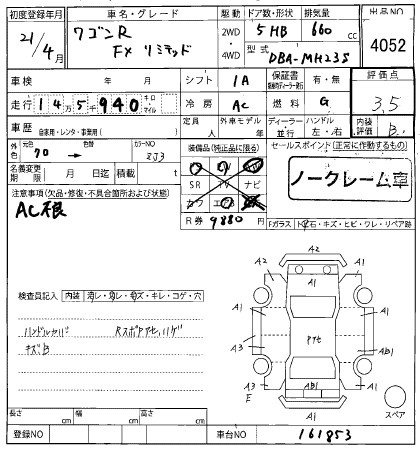 初度登録年月 車名・グレード 駆動 ドア数・形状 排気量 出品NO
21/4月 ワゴンR 2WD 5 HB 660 cc
FX リミテッド 4WD 型式 DBA-MH23S 4052
車検 年 月 シフト IA 保証書 有・無 評価点
走行 14万5千940 キロ・マイル 冷房 AC 燃料 G 3.5
車歴 自家用・レンタ・事業用( ) 定員 人 外車モデル 年 ディーラー 並行 ハンドル 左・右 内装評価 B
外色 元色 色替 カラーNO
70 → ZJ3
装備品(純正品に限る) セールスポイント(正常に作動するもの)
名義変更期限 月 日迄 積載 t
SR TV ナビ
カワ エアB
R券 9880円
ノークレーム車
注意事項(欠品・修復・不具合箇所および状態)
AC根
Fガラス トビ石・キズ・ヒビ・ワレ・リペア跡
A2
A2 A1
A1
検査員記入 内装 汚レ・穴レ・キズ・キレ・コゲ・穴
ハンドルカバ Rスポアアセハゲ
キズB
A1 アアセ A1
A3 AB1
A3 AB1 A1
F A1
スペア
長さ cm 幅 cm 高さ cm
登録NO 車台NO 161853